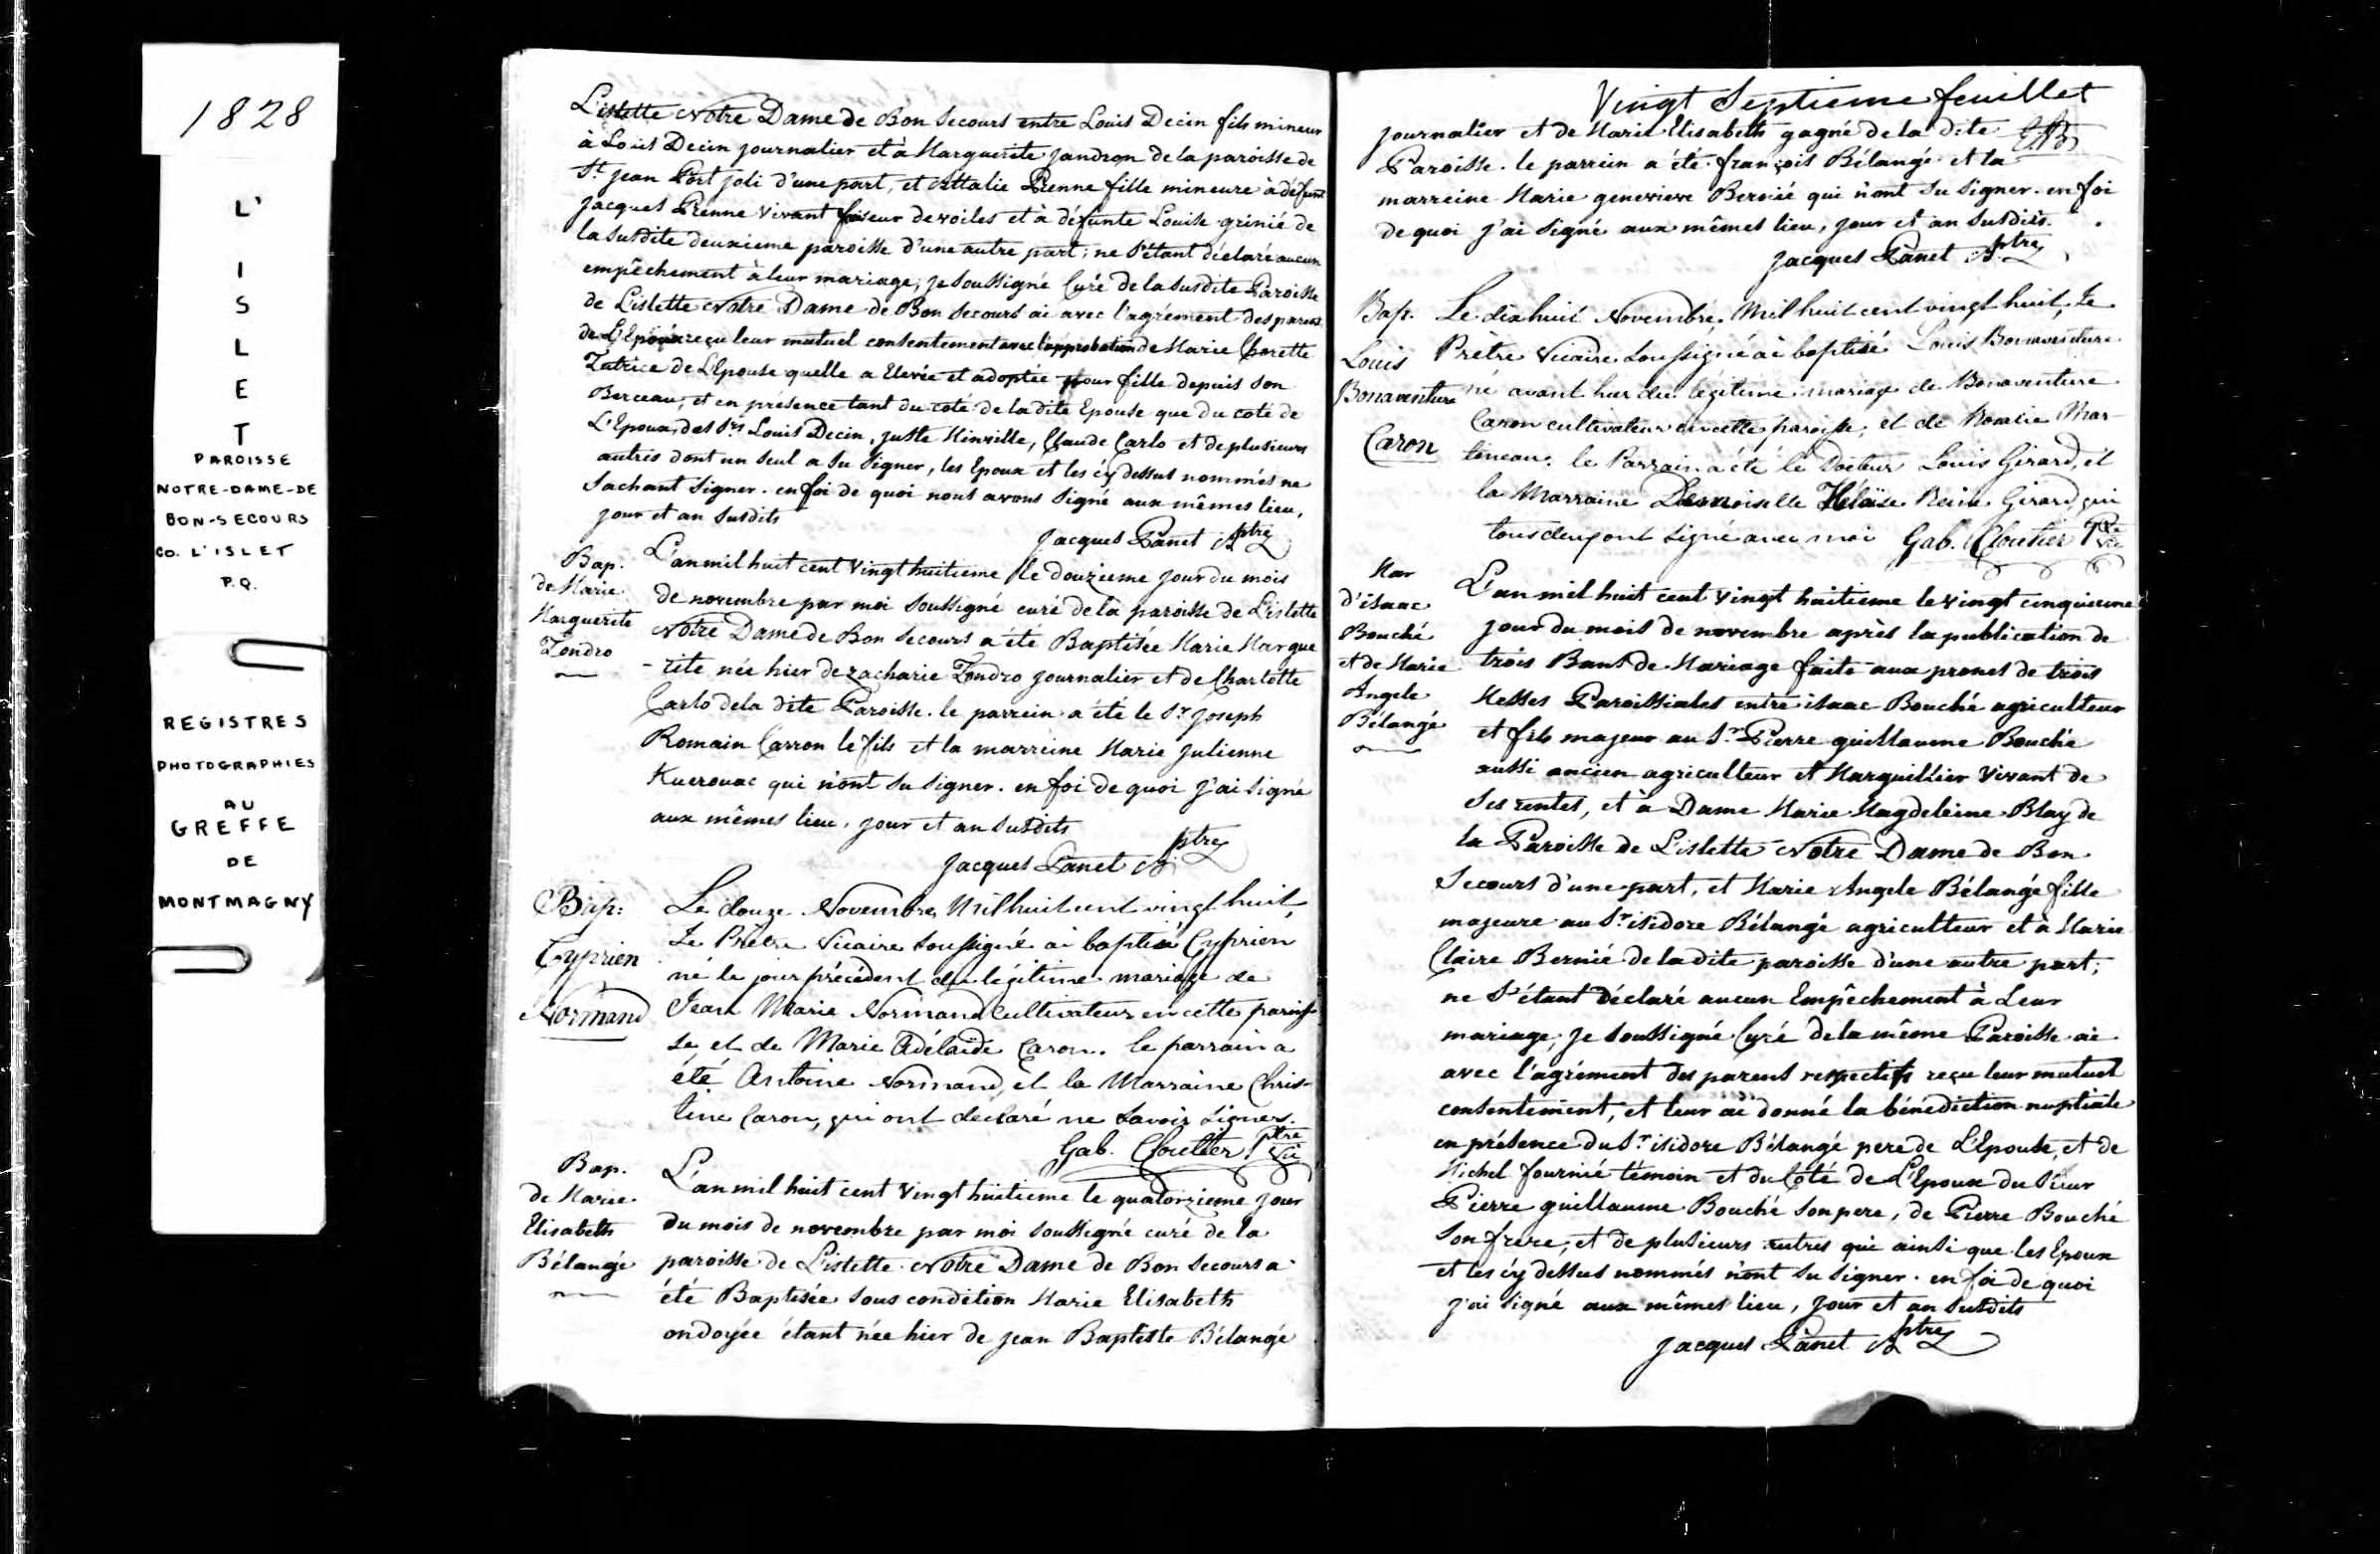 1828
L'
I
S
L
E
T
PAROISSE
NOTRE-DAME-DE
BON-SECOURS
CO. L'ISLET
P.Q.
REGISTRES
PHOTOGRAPHIES
AU
GREFFE
DE
MONTMAGNY
L'islette Notre Dame de Bon Secours entre Louis Decin fils mineur
à Louis Decin journalier et à Marguerite jandron de la paroisse de
St jean Port joli d'une part, et Attalie Pienne fille mineure à défunt
jacques Pienne vivant faiseur de voiles et à défunte Louise grinié de
la susdite deuxieme paroisse d'une autre part; ne s'étant déclaré aucun
empêchement à leur mariage; je soussigné Curé de la susdite Paroisse
de L'islette Notre Dame de Bon Secours ai avec l'agrément des parens
de L'Epoux reçu leur mutuel consentement avec l'approbation de Marie Chorette
Tutrice de L'Epouse quelle a Elevée et adoptée pour fille depuis son
Berceau; et en présence tant du coté de la dite Epouse que du coté de
L'Epoux, des Srs Louis Decin, juste Minville, Claude Carlo et de plusieurs
autres dont un seul a su signer, les Epoux et les cy dessus nommés ne
sachant signer. en foi de quoi nous avons signé aux mêmes lieu,
jour et an susdits
jacques Panet ptre
Bap.
de Marie
Marguerite
Zondro
L'an mil huit cent vingt huitieme le douzieme jour du mois
de novembre par moi soussigné curé de la paroisse de L'islette
Notre Dame de Bon Secours a été Baptisée Marie Margue
-rite née hier de zacharie Zondro journalier et de Charlotte
Carlo de la dite Paroisse. le parrein a été le Sr joseph
Romain Carron le fils et la marreine Marie julienne
Kuerouac qui n'ont su signer. en foi de quoi j'ai signé
aux mêmes lieu, jour et an susdits
jacques Panet ptre
Bap:
Cyprien
Normand
Le douze Novembre, Mil huit cent vingt huit,
Je Prêtre Vicaire soussigné ai baptisé Cyprien
né le jour précédent du légitime mariage de
Jean Marie Normand cultivateur en cette parois-
se et de Marie Adélaïde Caron. le parrain a
été Antoine Normand, et la Marraine Chris-
tine Caron, qui ont déclaré ne savoir signer.
Gab. Cloutier Ptre Vic
Bap.
de Marie
Elisabeth
Bélangé
L'an mil huit cent vingt huitieme le quatorzieme jour
du mois de novembre par moi soussigné curé de la
paroisse de L'islette Notre Dame de Bon Secours a
été Baptisée sous condition Marie Elisabeth
ondoyée étant née hier de jean Baptiste Bélangé
Vingt Septieme feuillet
journalier et de Marie Elisabeth gagné de la dite
Paroisse. le parrein a été françois Bélangé et la
marreine Marie genevieve Bernié qui n'ont su signer. en foi
de quoi j'ai signé aux mêmes lieu, jour et an susdits.
jacques Panet ptre
Bap.
Louis
Bonaventure
Caron
Le dix huit Novembre, Mil huit cent vingt huit, Je
Prêtre Vicaire soussigné ai baptisé Louis Bonaventure
né avant hier du légitime mariage de Bonaventure
Caron cultivateur en cette paroisse, et de Rosalie Mar-
tineau. le Parrain a été le Docteur Louis Girard, et
la Marraine Demoiselle Héloïse Reine Girard, qui
tous deux ont signé avec moi Gab. Cloutier Ptre Vic
Mar
d'isaac
Bouché
et de Marie
Angele
Bélangé
L'an mil huit cent vingt huitieme le vingt cinquieme
jour du mois de novembre après la publication de
trois Bans de Mariage faite aux prones de trois
Messes Paroissiales entre isaac Bouché agriculteur
et fils majeur au Sr Pierre guillaume Bouché
aussi ancien agriculteur et Marguillier vivant de
ses rentes, et à Dame Marie Magdeleine Blay de
la Paroisse de L'islette Notre Dame de Bon
Secours d'une part, et Marie Angele Bélangé fille
majeure au Sr isidore Bélangé agriculteur et à Marie
Claire Bernié de la dite paroisse d'une autre part;
ne s'étant déclaré aucun Empêchement à Leur
mariage; je soussigné Curé de la même Paroisse ai
avec l'agrément des parens respectifs reçu leur mutuel
consentement, et leur ai donné la bénédiction nuptiale
en présence du Sr isidore Bélangé pere de L'Epouse, et de
Michel fournié témoin et du Coté de L'Epoux du Sieur
Pierre guillaume Bouché son pere, de Pierre Bouché
son frere, et de plusieurs autres qui ainsi que les Epoux
et les cy dessus nommés n'ont su signer. en foi de quoi
j'ai signé aux mêmes lieu, jour et an susdits
jacques Panet ptre